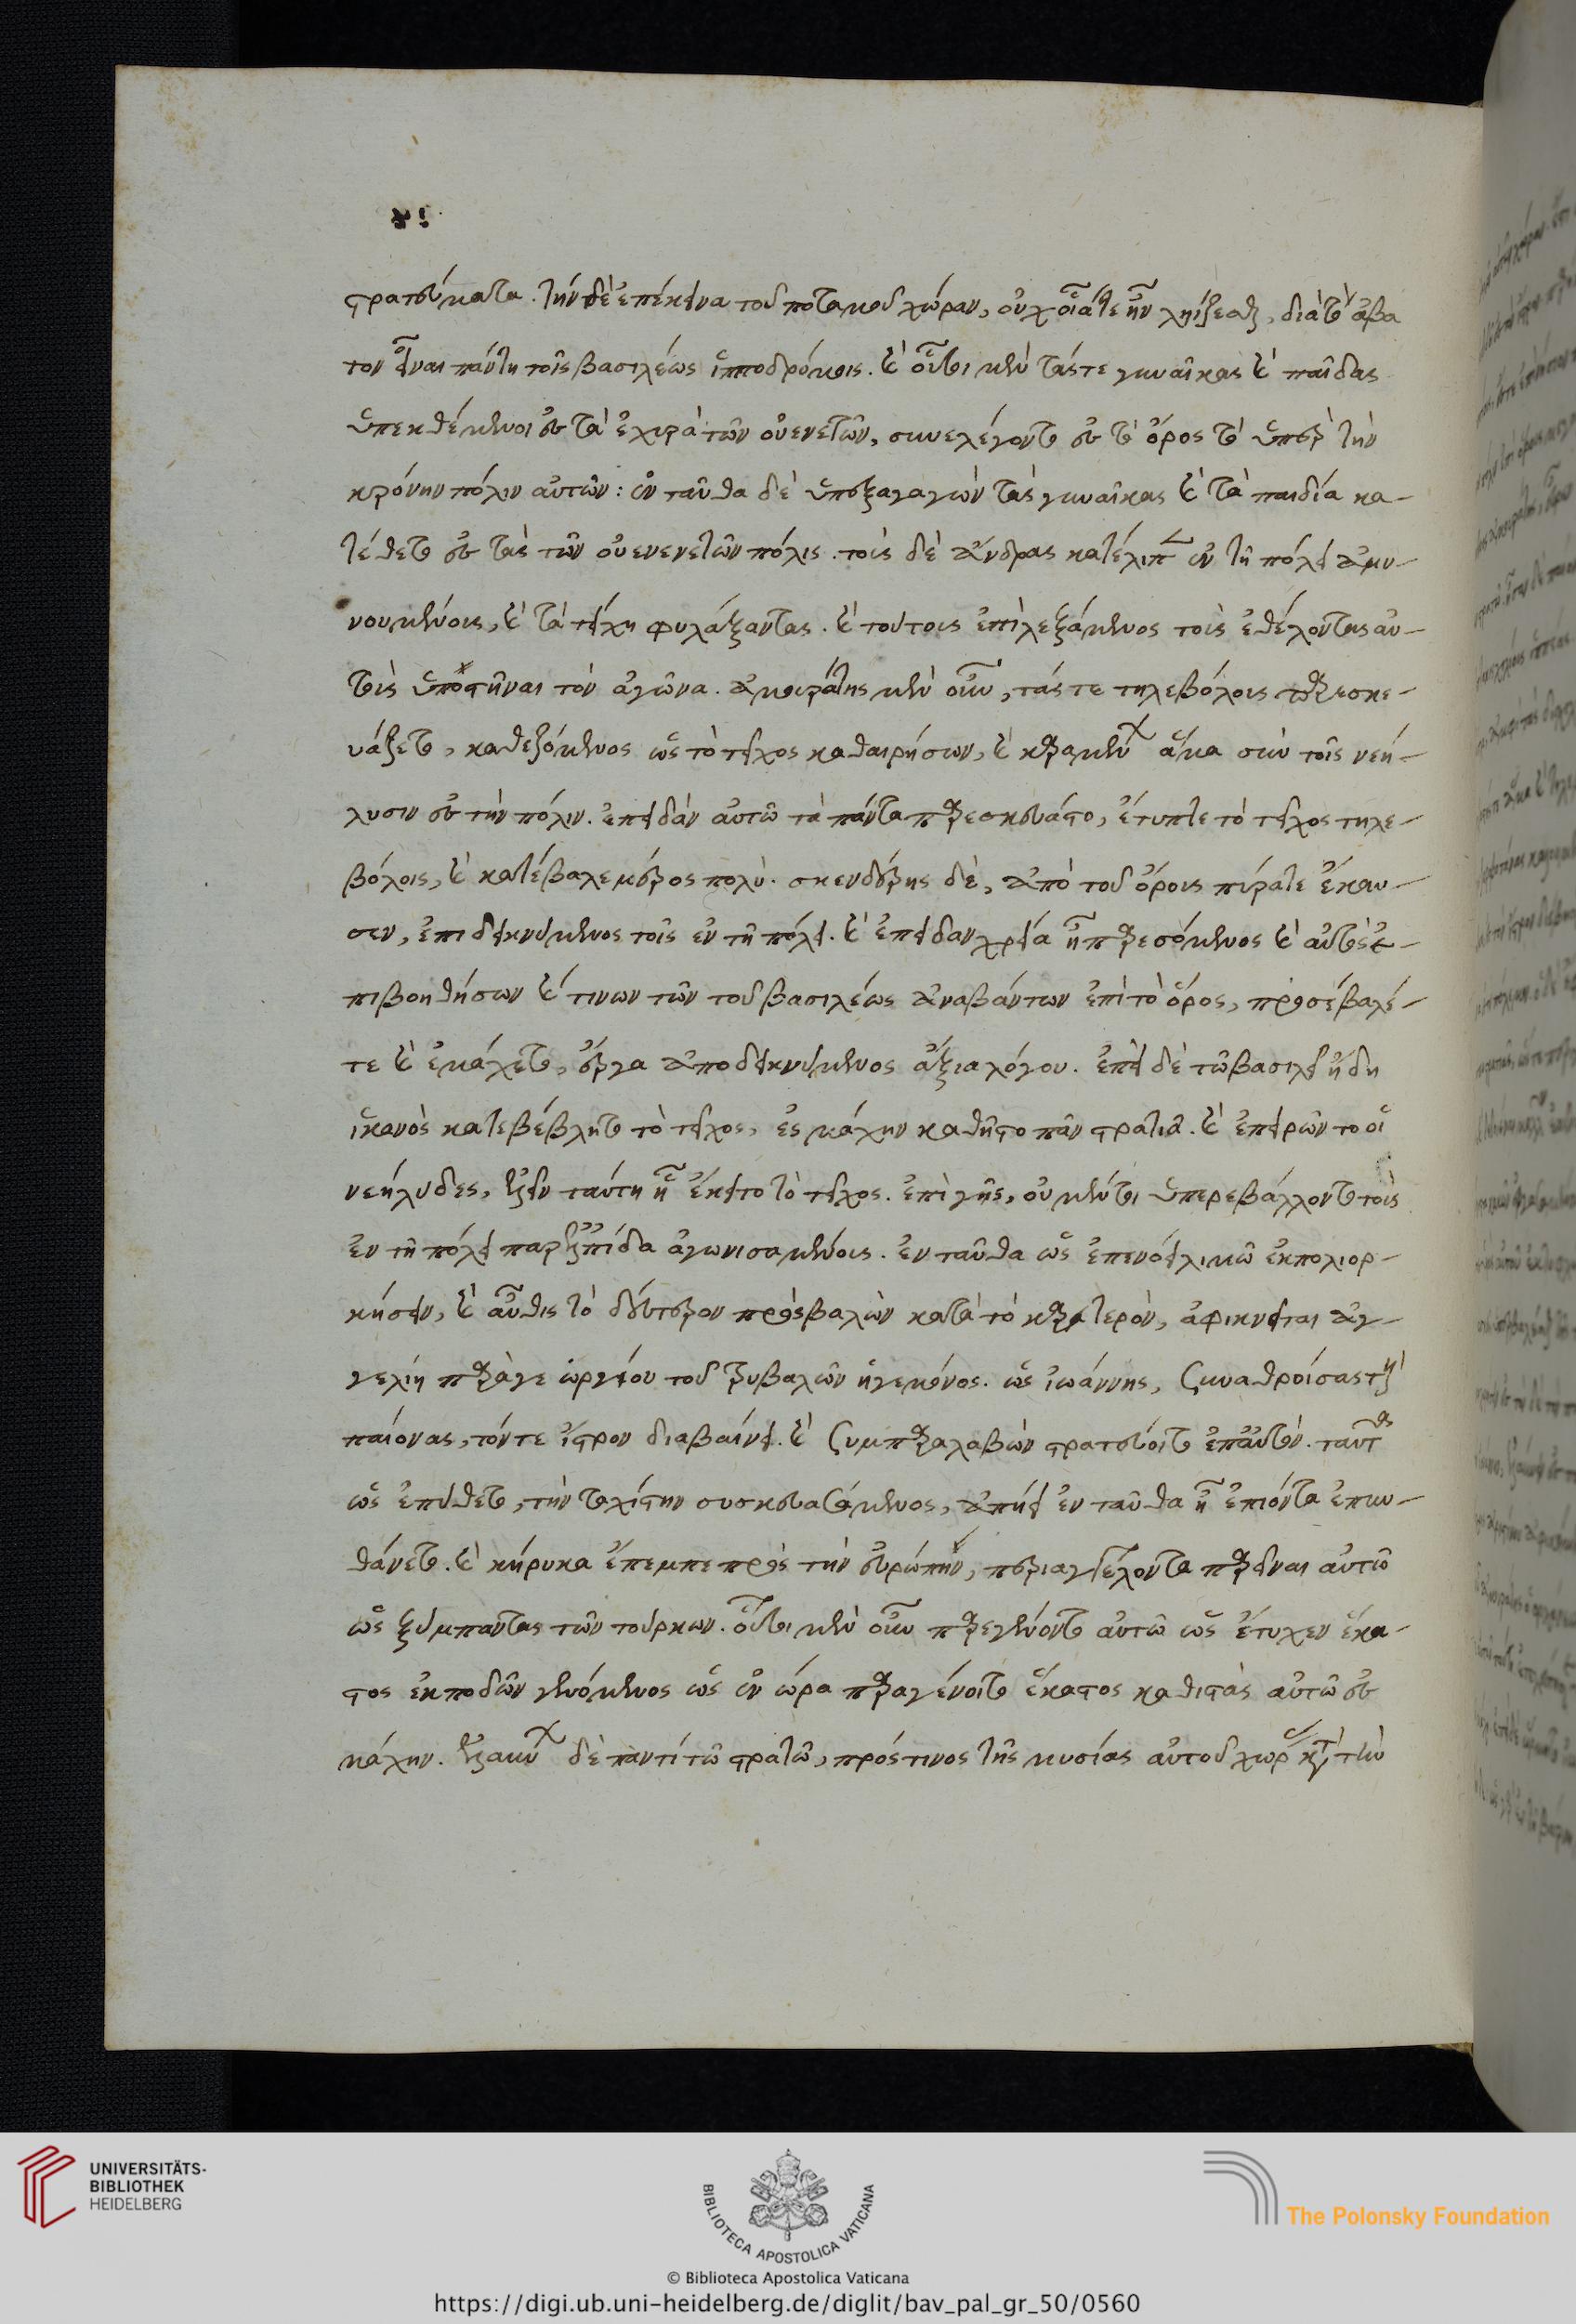 στρατεύματα. τὴν δὲ ἐπέκεινα τοῦ ποταμοῦ χώραν, οὐχ οἷά τε ἦν ληΐζεσθαι, διὰ τὸ ἄβα
τον εἶναι πάντη τοῖς βασιλέως ἱπποδρόμοις. καὶ οὗτοι μὲν τάς τε γυναῖκας καὶ παῖδας
ὑπεκθέμενοι ἐς τὰ ἐχυρὰ τῶν οὐενετῶν, συνελέγοντο ἐς τὸ ὄρος τὸ ὑπὲρ τὴν
κρόνην πόλιν αὐτῶν: ἐν ταῦθα δὲ ὑπεξαγαγὼν τὰς γυναῖκας καὶ τὰ παιδία κα-
τέθετο ἐς τὰς τῶν οὐενενετῶν πόλις. τοὺς δὲ ἄνδρας κατέλιπεν ἐν τῇ πόλει ἀμυ-
νουμένους, καὶ τὰ τείχη φυλάξαντας. καὶ τούτοις ἐπιλεξάμενος τοὺς ἐθέλοντας αὐ-
τοὺς ὑποστῆναι τὸν ἀγῶνα. ἀμουράτης μὲν οὖν, τάς τε τηλεβόλους παρεσκε-
υάζετο, καθεζόμενος ὡς τὸ τεῖχος καθαιρήσων, καὶ ἅμα σὺν τοῖς νεή-
λυσιν ἐς τὴν πόλιν. ἐπειδὰν αὐτῷ τὰ πάντα παρεσκεύαστο, ἔτυπτε τὸ τεῖχος τηλε-
βόλοις, καὶ κατέβαλε μέρος πολύ. σκενδέρης δὲ, ἀπὸ τοῦ ὄρους πύρά τε ἔκαυ-
σεν, ἐπιδεικνύμενος τοῖς ἐν τῇ πόλει. καὶ ἐπειδὰν χρεία ᾖ παρεσόμενος καὶ αὐτὸς ἐ-
πιβοηθήσων καί τινων τῶν τοῦ βασιλέως ἀναβάντων ἐπὶ τὸ ὄρος, προσέβαλέ-
τε καὶ ἐμάχετο, ἔργα ἀποδεικνύμενος ἄξια λόγου. ἐπεὶ δὲ τῷ βασιλεῖ ἤδη
ἱκανὸς κατεβέβλητο τὸ τεῖχος, ἐς μάχην καθῆστο πᾶν στρατιᾶ. καὶ ἐπειρῶντο οἱ
νεήλυδες, ἐξεῖν ταύτη ᾗ ἔκειτο τὸ τεῖχος. ἐπὶ γῆς, οὐ μέντοι ὑπερεβάλλοντο τοὺς
ἐν τῇ πόλει παρ ἐλπίδα ἀγωνισαμένους. ἐν ταῦθα ὡς ἐπενόει λιμῷ ἐκπολιορ-
κήσειν, καὶ αὖθις τὸ δεύτερον προσβαλὼν κατὰ τὸ καρτερὸν, ἀφικνεῖται ἀγ-
γελίη παρά γε ὡργίου τοῦ τριβαλῶν ἡγεμόνος. ὡς ἰωάννης, ξυναθροίσας τοὺς
παίονας, τόν τε ἴστρον διαβαίνει. καὶ ξυμπαραλαβὼν στρατεύοιτο ἐπ αὐτόν. ταῦτα
ὡς ἐπύθετο, τὴν ταχίστην συσκευασάμενος, ἀπῄει ἐν ταῦθα ᾗ ἐπιόντα ἐπυν-
θάνετο. καὶ κήρυκα ἔπεμπε πρὸς τὴν εὐρώπην, περιαγγέλοντα παρεῖναι αὐτῷ
ὡς ξύμπαντας τῶν τούρκων. οὗτοι μὲν οὖν παρεγένοντο αὐτῷ ὡς ἔτυχεν ἕκα-
στος ἐκποδῶν γενόμενος ὡς ἐν ὥρα παραγένοιτο ἕκαστος καθιστὰς αὐτῷ ἐς
μάχην. δὲ παντί τῷ στρατῷ, πρός τινος τῆς μυσίας αὐτοῦ χωρ κατὰ τὴν